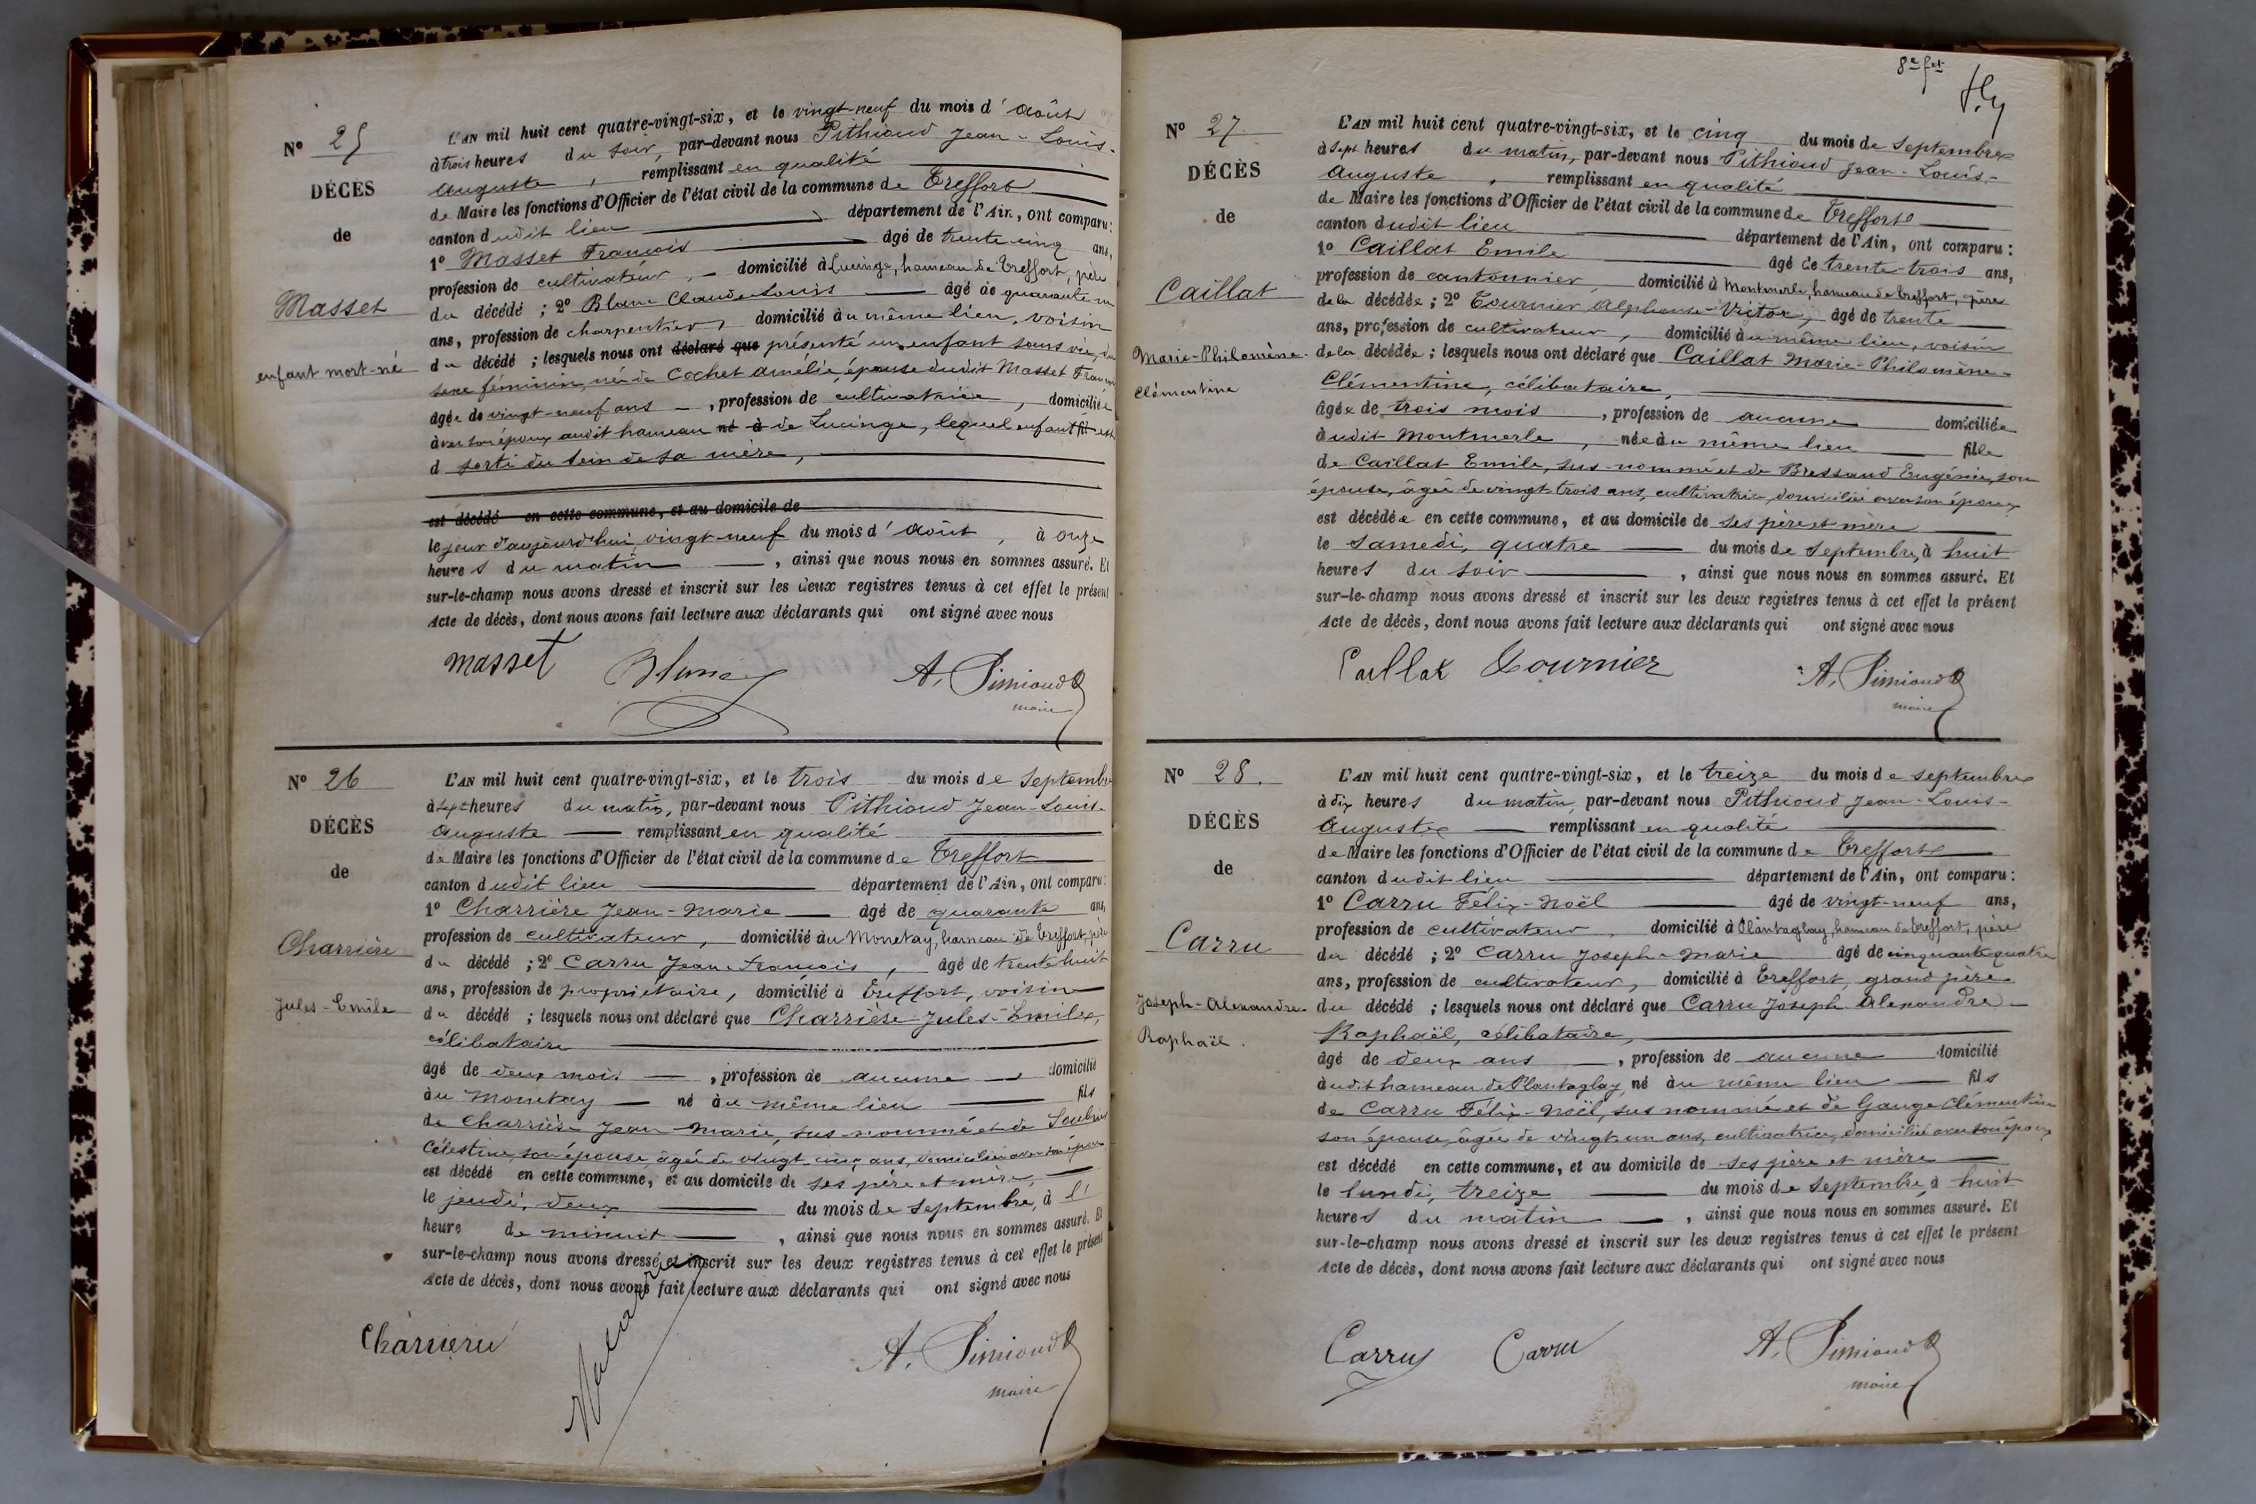 Nº 25
DÉCÈS
de
Masset
enfant mort-né
L'AN mil huit cent quatre-vingt-six, et le vingt-neuf du mois d'août
à trois heures du soir, par-devant nous Pithioud Jean-Louis-
Auguste, remplissant en qualité
de Maire les fonctions d'Officier de l'état civil de la commune de Treffort
canton dudit lieu département de l'Ain, ont comparu:
1º Masset François âgé de trente cinq ans,
profession de cultivateur, domicilié à Lucinge, hameau de Treffort, père
du décédé; 2º Blanc Claude-Louis âgé de quarante-un
ans, profession de charpentier, domicilié au même lieu, voisin
du décédé; lesquels nous ont déclaré que présenté un enfant sans vie, du
sexe féminin, né de Cochet Amélie, épouse dudit Masset François
âgée de vingt-neuf ans, profession de cultivatrice, domiciliée
avec son époux audit hameau né à de Lucinge, lequel enfant fil est
d sorti du sein de sa mère,
est décédé en cette commune, et au domicile de
le jour d'aujourd'hui vingt-neuf du mois d'août, à onze
heures du matin, ainsi que nous nous en sommes assuré. Et
sur-le-champ nous avons dressé et inscrit sur les deux registres tenus à cet effet le présent
Acte de décès, dont nous avons fait lecture aux déclarants qui ont signé avec nous
Masset Blanc A. Pithioud
maire
Nº 26
DÉCÈS
de
Charrière
Jules-Emile
L'AN mil huit cent quatre-vingt-six, et le trois du mois de septembre
à sept heures du matin, par-devant nous Pithioud Jean-Louis-
Auguste remplissant en qualité
de Maire les fonctions d'Officier de l'état civil de la commune de Treffort
canton dudit lieu département de l'Ain, ont comparu:
1º Charrière Jean-Marie âgé de quarante ans,
profession de cultivateur, domicilié au Monetay, hameau de Treffort, père
du décédé; 2º Carru Jean-François, âgé de trente huit
ans, profession de propriétaire, domicilié à Treffort, voisin
du décédé; lesquels nous ont déclaré que Charrière Jules-Emile,
célibataire
âgé de deux mois, profession de aucune domicilié
au Monetay né au même lieu fils
de Charrière Jean-Marie, sus-nommé et de
Célestine, son épouse, âgée de vingt-cinq ans, domiciliée avec son époux
est décédé en cette commune, et au domicile de ses père et mère,
le jeudi, deux du mois de septembre, à l'
heure de minuit, ainsi que nous nous en sommes assuré. Et
sur-le-champ nous avons dressé et inscrit sur les deux registres tenus à cet effet le présent
Acte de décès, dont nous avons fait lecture aux déclarants qui ont signé avec nous
Charrière A. Pithioud
maire
8e fet
Nº 27
DÉCÈS
de
Caillat
Marie-Philomène-
Clémentine
L'AN mil huit cent quatre-vingt-six, et le cinq du mois de septembre
à sept heures du matin, par-devant nous Pithioud Jean-Louis-
Auguste, remplissant en qualité
de Maire les fonctions d'Officier de l'état civil de la commune de Treffort
canton dudit lieu département de l'Ain, ont comparu:
1º Caillat Emile âgé de trente-trois ans,
profession de cantonnier, domicilié à Montmerle, hameau de Treffort, père
de la décédée; 2º Tournier Alphonse-Victor, âgé de trente
ans, profession de cultivateur, domicilié au même lieu, voisin
de la décédée; lesquels nous ont déclaré que Caillat Marie-Philomène-
Clémentine, célibataire,
âgée de trois mois, profession de aucune domiciliée
audit Montmerle, née au même lieu fille
de Caillat Emile, sus-nommé et de Bressand Eugénie, son
épouse, âgée de vingt-trois ans, cultivatrice, domiciliée avec son époux,
est décédée en cette commune, et au domicile de ses père et mère
le samedi, quatre du mois de septembre, à huit
heures du soir, ainsi que nous nous en sommes assuré. Et
sur-le-champ nous avons dressé et inscrit sur les deux registres tenus à cet effet le présent
Acte de décès, dont nous avons fait lecture aux déclarants qui ont signé avec nous
Caillat Tournier A. Pithioud
maire
Nº 28.
DÉCÈS
de
Carru
Joseph-Alexandre-
Raphaël.
L'AN mil huit cent quatre-vingt-six, et le treize du mois de septembre
à dix heures du matin, par-devant nous Pithioud Jean-Louis-
Auguste remplissant en qualité
de Maire les fonctions d'Officier de l'état civil de la commune de Treffort
canton dudit lieu département de l'Ain, ont comparu:
1º Carru Félix-Noël âgé de vingt-neuf ans,
profession de cultivateur, domicilié à Plantaglay, hameau de Treffort, père
du décédé; 2º Carru Joseph-Marie âgé de cinquante quatre
ans, profession de cultivateur, domicilié à Treffort, grand père
du décédé; lesquels nous ont déclaré que Carru Joseph Alexandre-
Raphaël, célibataire,
âgé de deux ans, profession de aucune domicilié
audit hameau de Plantaglay, né au même lieu fils
de Carru Félix-Noël, sus nommé et de Gauge Clémentine
son épouse, âgée de vingt-un ans, cultivatrice, domiciliée avec son époux,
est décédé en cette commune, et au domicile de ses père et mère
le lundi, treize du mois de septembre, à huit
heures du matin, ainsi que nous nous en sommes assuré. Et
sur-le-champ nous avons dressé et inscrit sur les deux registres tenus à cet effet le présent
Acte de décès, dont nous avons fait lecture aux déclarants qui ont signé avec nous
Carru Carru A. Pithioud
maire